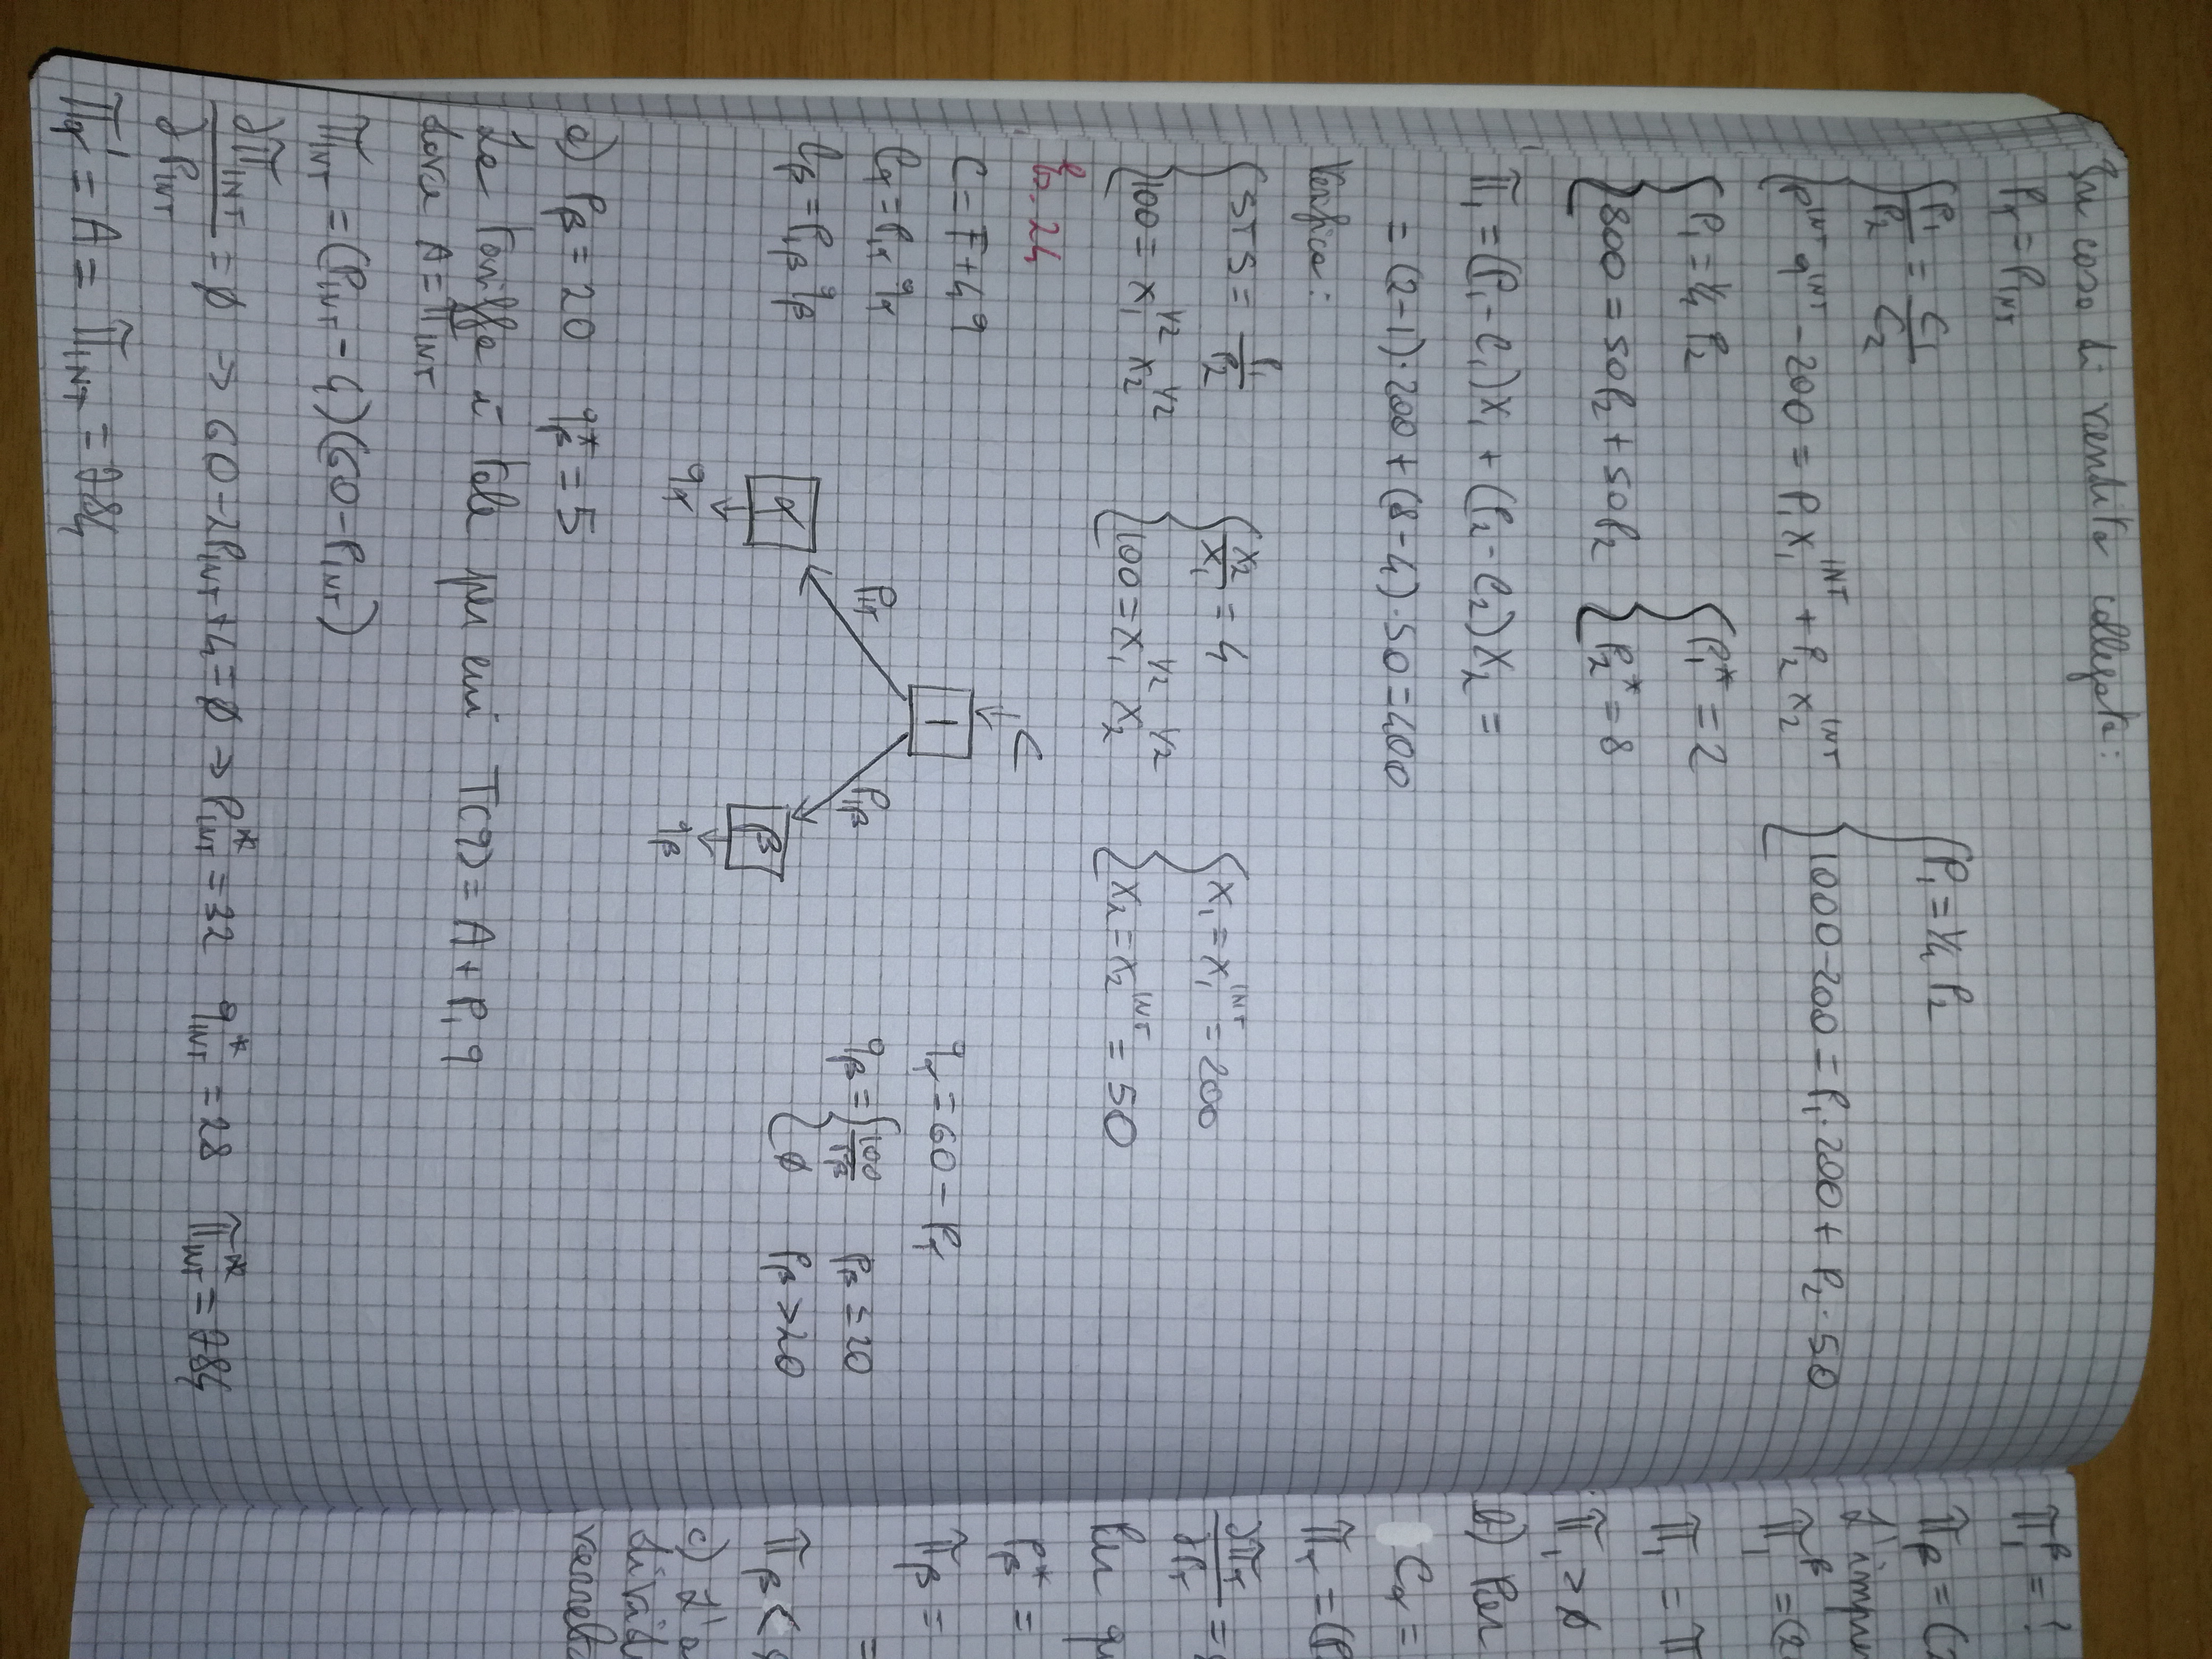 In caso di vendita collegata:
Pα = PINT
{ P1/P2 = C1/C2
P^INT q^INT - 200 = P1 x1^INT + P2 x2^INT
{ P1 = 1/4 P2
1000-200 = P1·200 + P2·50
{ P1 = 1/4 P2
800 = 50P2 + 50P2
{ P1* = 2
P2* = 8
π1 = (P1-C1)X1 + (P2-C2)X2 =
= (2-1)·200 + (8-4)·50 = 400
Verifica:
{ STS = P1/P2
100 = x1^1/2 x2^1/2
{ x2/x1 = 4
100 = x1^1/2 x2^1/2
{ x1 = x1^INT = 200
x2 = x2^INT = 50
Es. 24
C = F + 4q
Cα = P1α qα
Cβ = P1β qβ
C
1
P1α
P1β
α
β
qα
qβ
qα = 60 - Pα
qβ = { 100/Pβ Pβ ≤ 20
∅ Pβ > 20
a) Pβ = 20 qβ* = 5
La tariffa è tale per cui T(q) = A + P1 q
dove A = πINT
πINT = (PINT - 4)(60 - PINT)
∂πINT/∂PINT = ∅ → 60 - 2PINT + 4 = ∅ → PINT* = 32 qINT* = 28 πINT* = 784
πα^1 = A = πINT = 784
π1^β = ?
πβ = (2
L'impre
π1^β = (2
π1 = π
π1 > ∅
b) Per
Cα =
πα = (P
∂πα/∂Pα =
Per qu
Pβ* =
πβ =
=
πβ <
c) L'a
divid